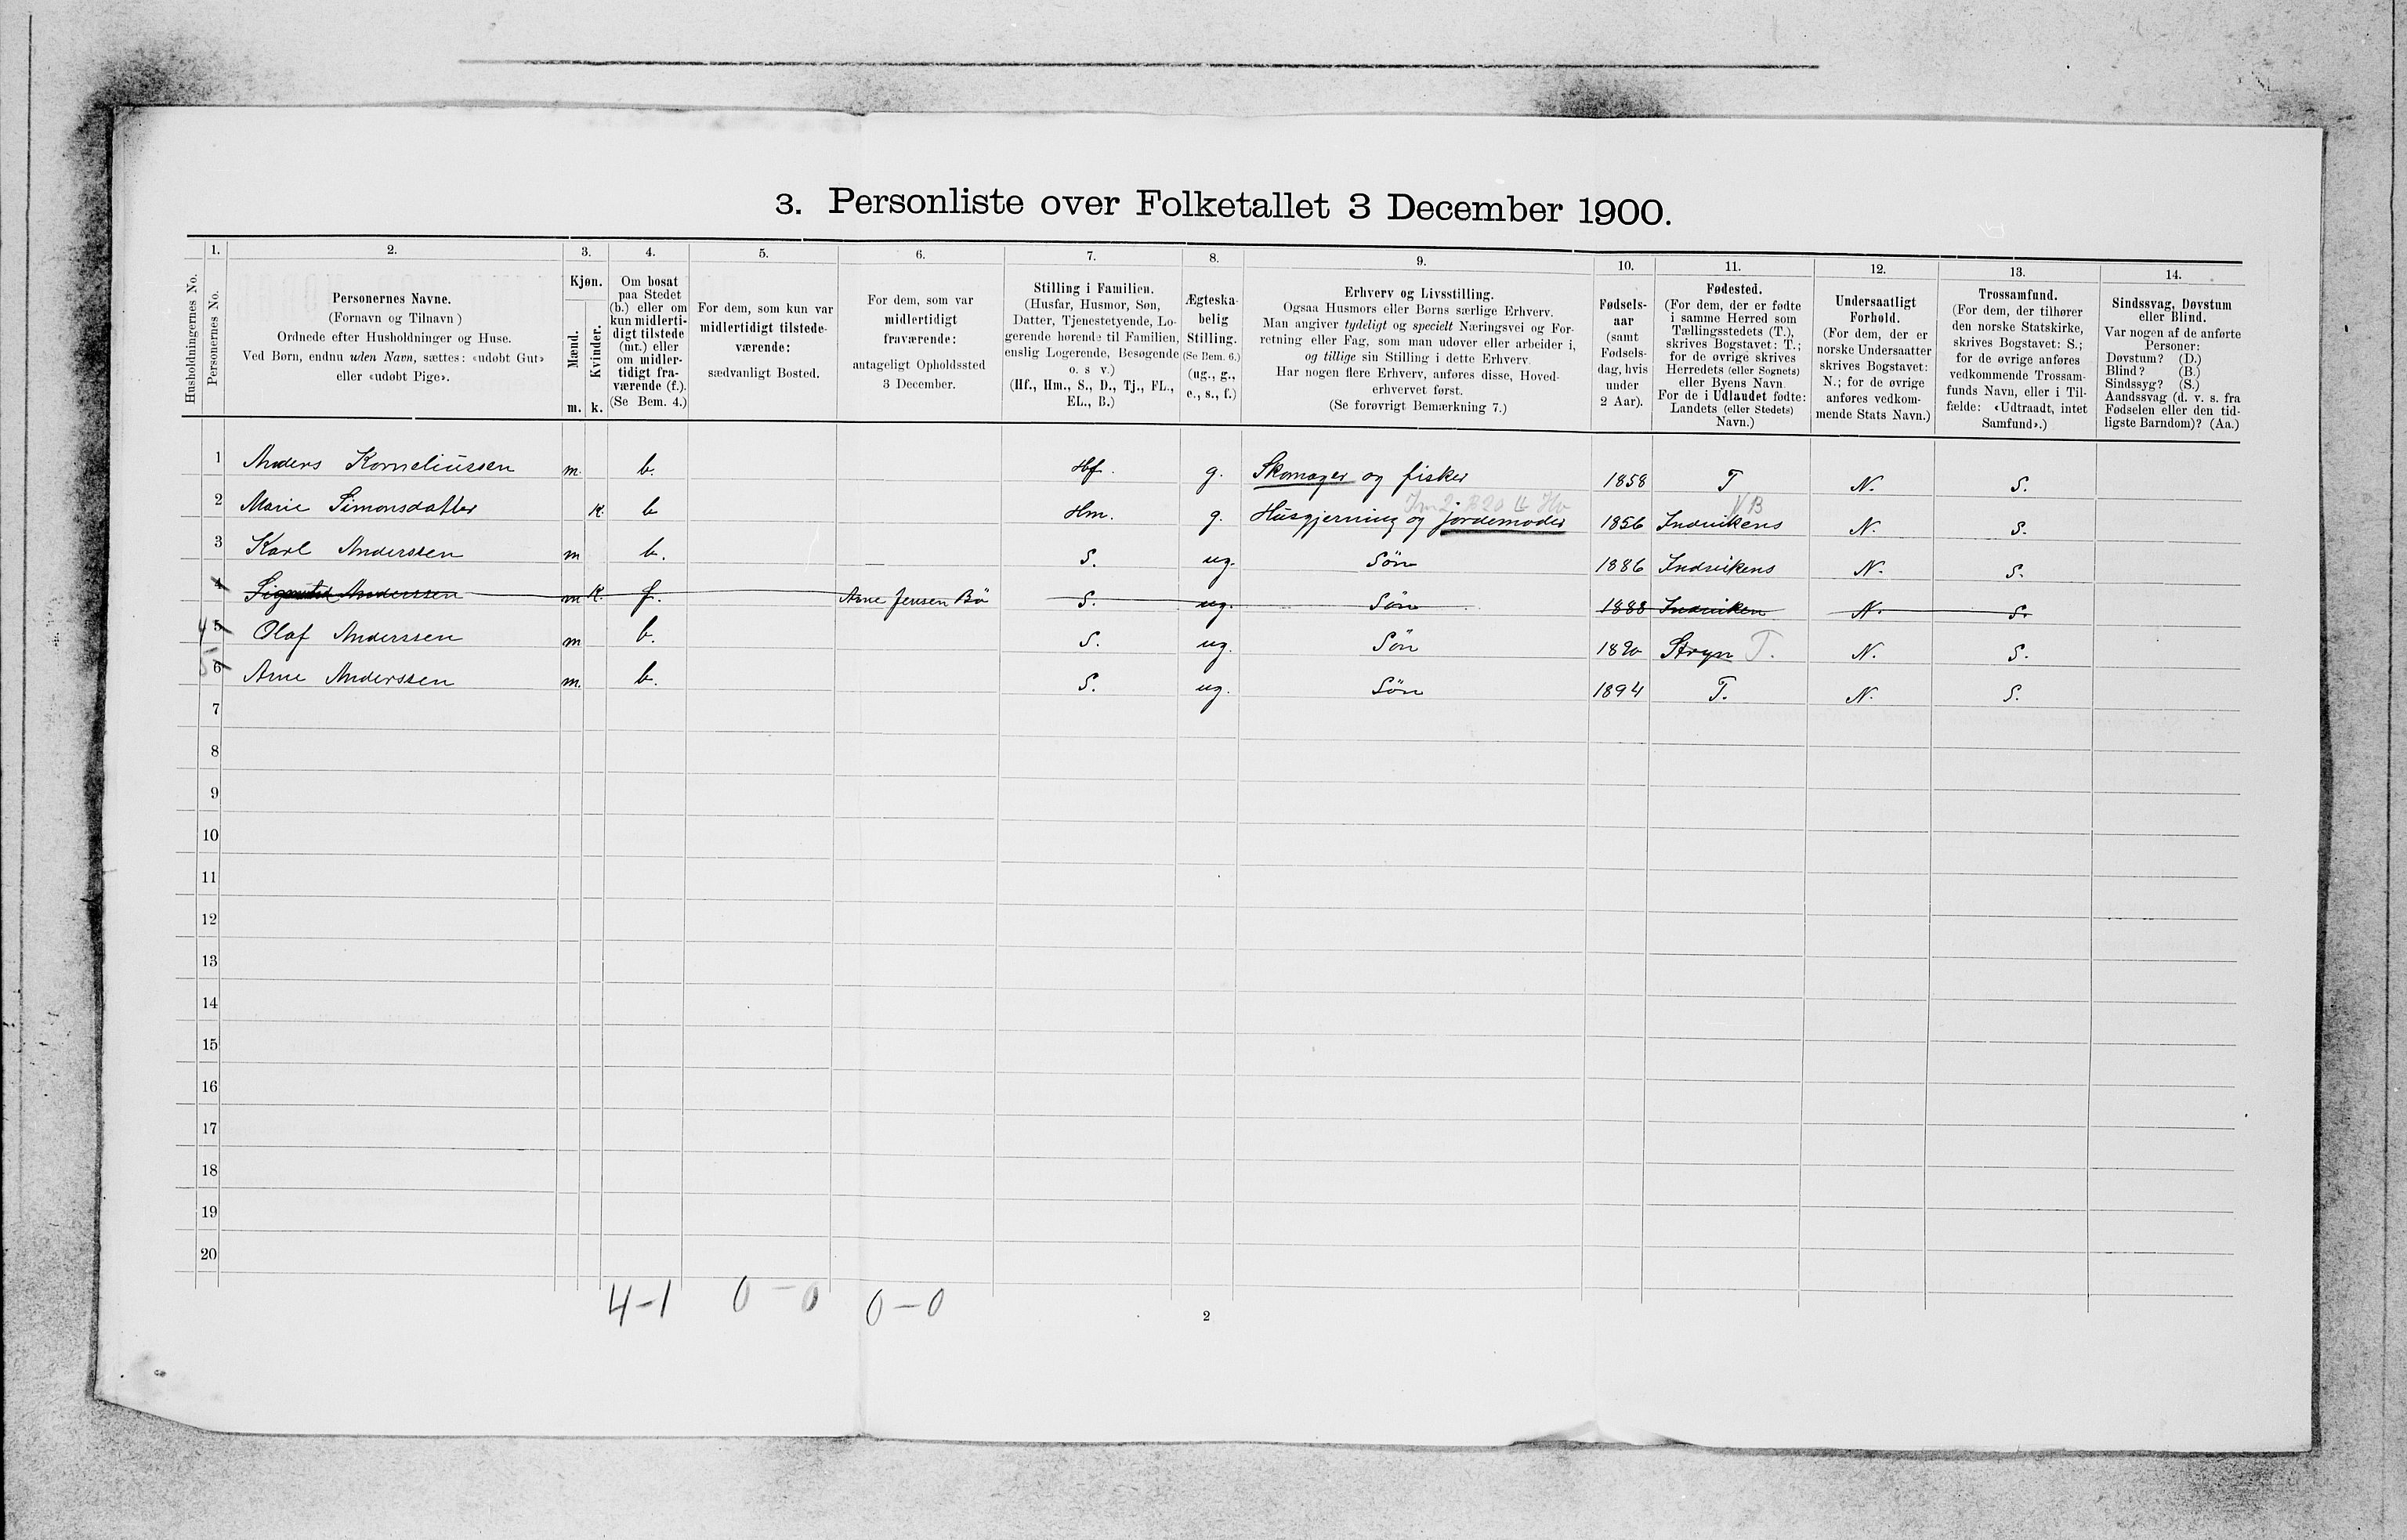 3. Personliste over Folketallet 3 December 1900.
1. 2. 3. 4. 5. 6. 7. 8. 9. 10. 11. 12. 13. 14.
Husholdningernes No.
Personernes No.
Personernes Navne.
(Fornavn og Tilnavn)
Ordnede efter Husholdninger og Huse.
Ved Børn, endnu uden Navn, sættes: «udøbt Gut»
eller «udøbt Pige».
Kjøn.
Mænd.
Kvinder.
m. k.
Om bosat
paa Stedet
(b.) eller om
kun midlerti-
digt tilstede
(mt.) eller
om midler-
tidigt fra-
værende (f.).
(Se Bem. 4.)
For dem, som kun var
midlertidigt tilstede-
værende:
sædvanligt Bosted.
For dem, som var
midlertidigt
fraværende:
antageligt Opholdssted
3 December.
Stilling i Familien.
(Husfar, Husmor, Søn,
Datter, Tjenestetyende, Lo-
gerende hørende til Familien,
enslig Logerende, Besøgende
o. s v.)
(Hf., Hm., S., D., Tj., FL.,
EL., B.)
Ægteska-
belig
Stilling.
(Se Bem. 6.)
(ug., g.,
e., s., f.)
Erhverv og Livsstilling.
Ogsaa Husmors eller Børns særlige Erhverv.
Man angiver tydeligt og specielt Næringsvei og For-
retning eller Fag, som man udøver eller arbeider i,
og tillige sin Stilling i dette Erhverv.
Har nogen flere Erhverv, anføres disse, Hoved-
erhvervet først.
(Se forøvrigt Bemærkning 7.)
Fødsels-
aar
(samt
Fødsels-
dag, hvis
under
2 Aar).
Fødested.
(For dem, der er fødte
i samme Herred som
Tællingsstedets (T.),
skrives Bogstavet: T.;
for de øvrige skrives
Herredets (eller Sognets)
eller Byens Navn.
For de i Udlandet fødte:
Landets (eller Stedets)
Navn.)
Undersaatligt
Forhold.
(For dem, der er
norske Undersaatter
skrives Bogstavet:
N.; for de øvrige
anføres vedkom-
mende Stats Navn.)
Trossamfund.
(For dem, der tilhører
den norske Statskirke,
skrives Bogstavet: S.;
for de øvrige anføres
vedkommende Trossam-
funds Navn, eller i Til-
fælde: «Udtraadt, intet
Samfund».)
Sindssvag, Døvstum
eller Blind.
Var nogen af de anførte
Personer:
Døvstum? (D.)
Blind? (B.)
Sindssyg? (S.)
Aandssvag (d. v. s. fra
Fødselen eller den tid-
ligste Barndom)? (Aa.)
1 Anders Korneliussen m. b. Hf. g. Skomager og fisker 1858 T N. S.
2 Marie Simonsdatter k. b Hm. g. Husgjerning og jordemoder 1856 Indvikens N. S.
3 Karl Anderssen m b. S. ug. Søn 1886 Indvikens N. S.
4 Anderssen m k. f. Arne Jensen Bö S. ug. Søn 1888 Indviken N. S.
4 5 Olaf Anderssen m b. S. ug. Søn 1890 Stryn T. N. S.
5 6 Arne Anderssen m. b. S. ug. Søn 1894 T. N. S.
7
8
9
10
11
12
13
14
15
16
17
18
19
20
4-1 0-0 0-0
2